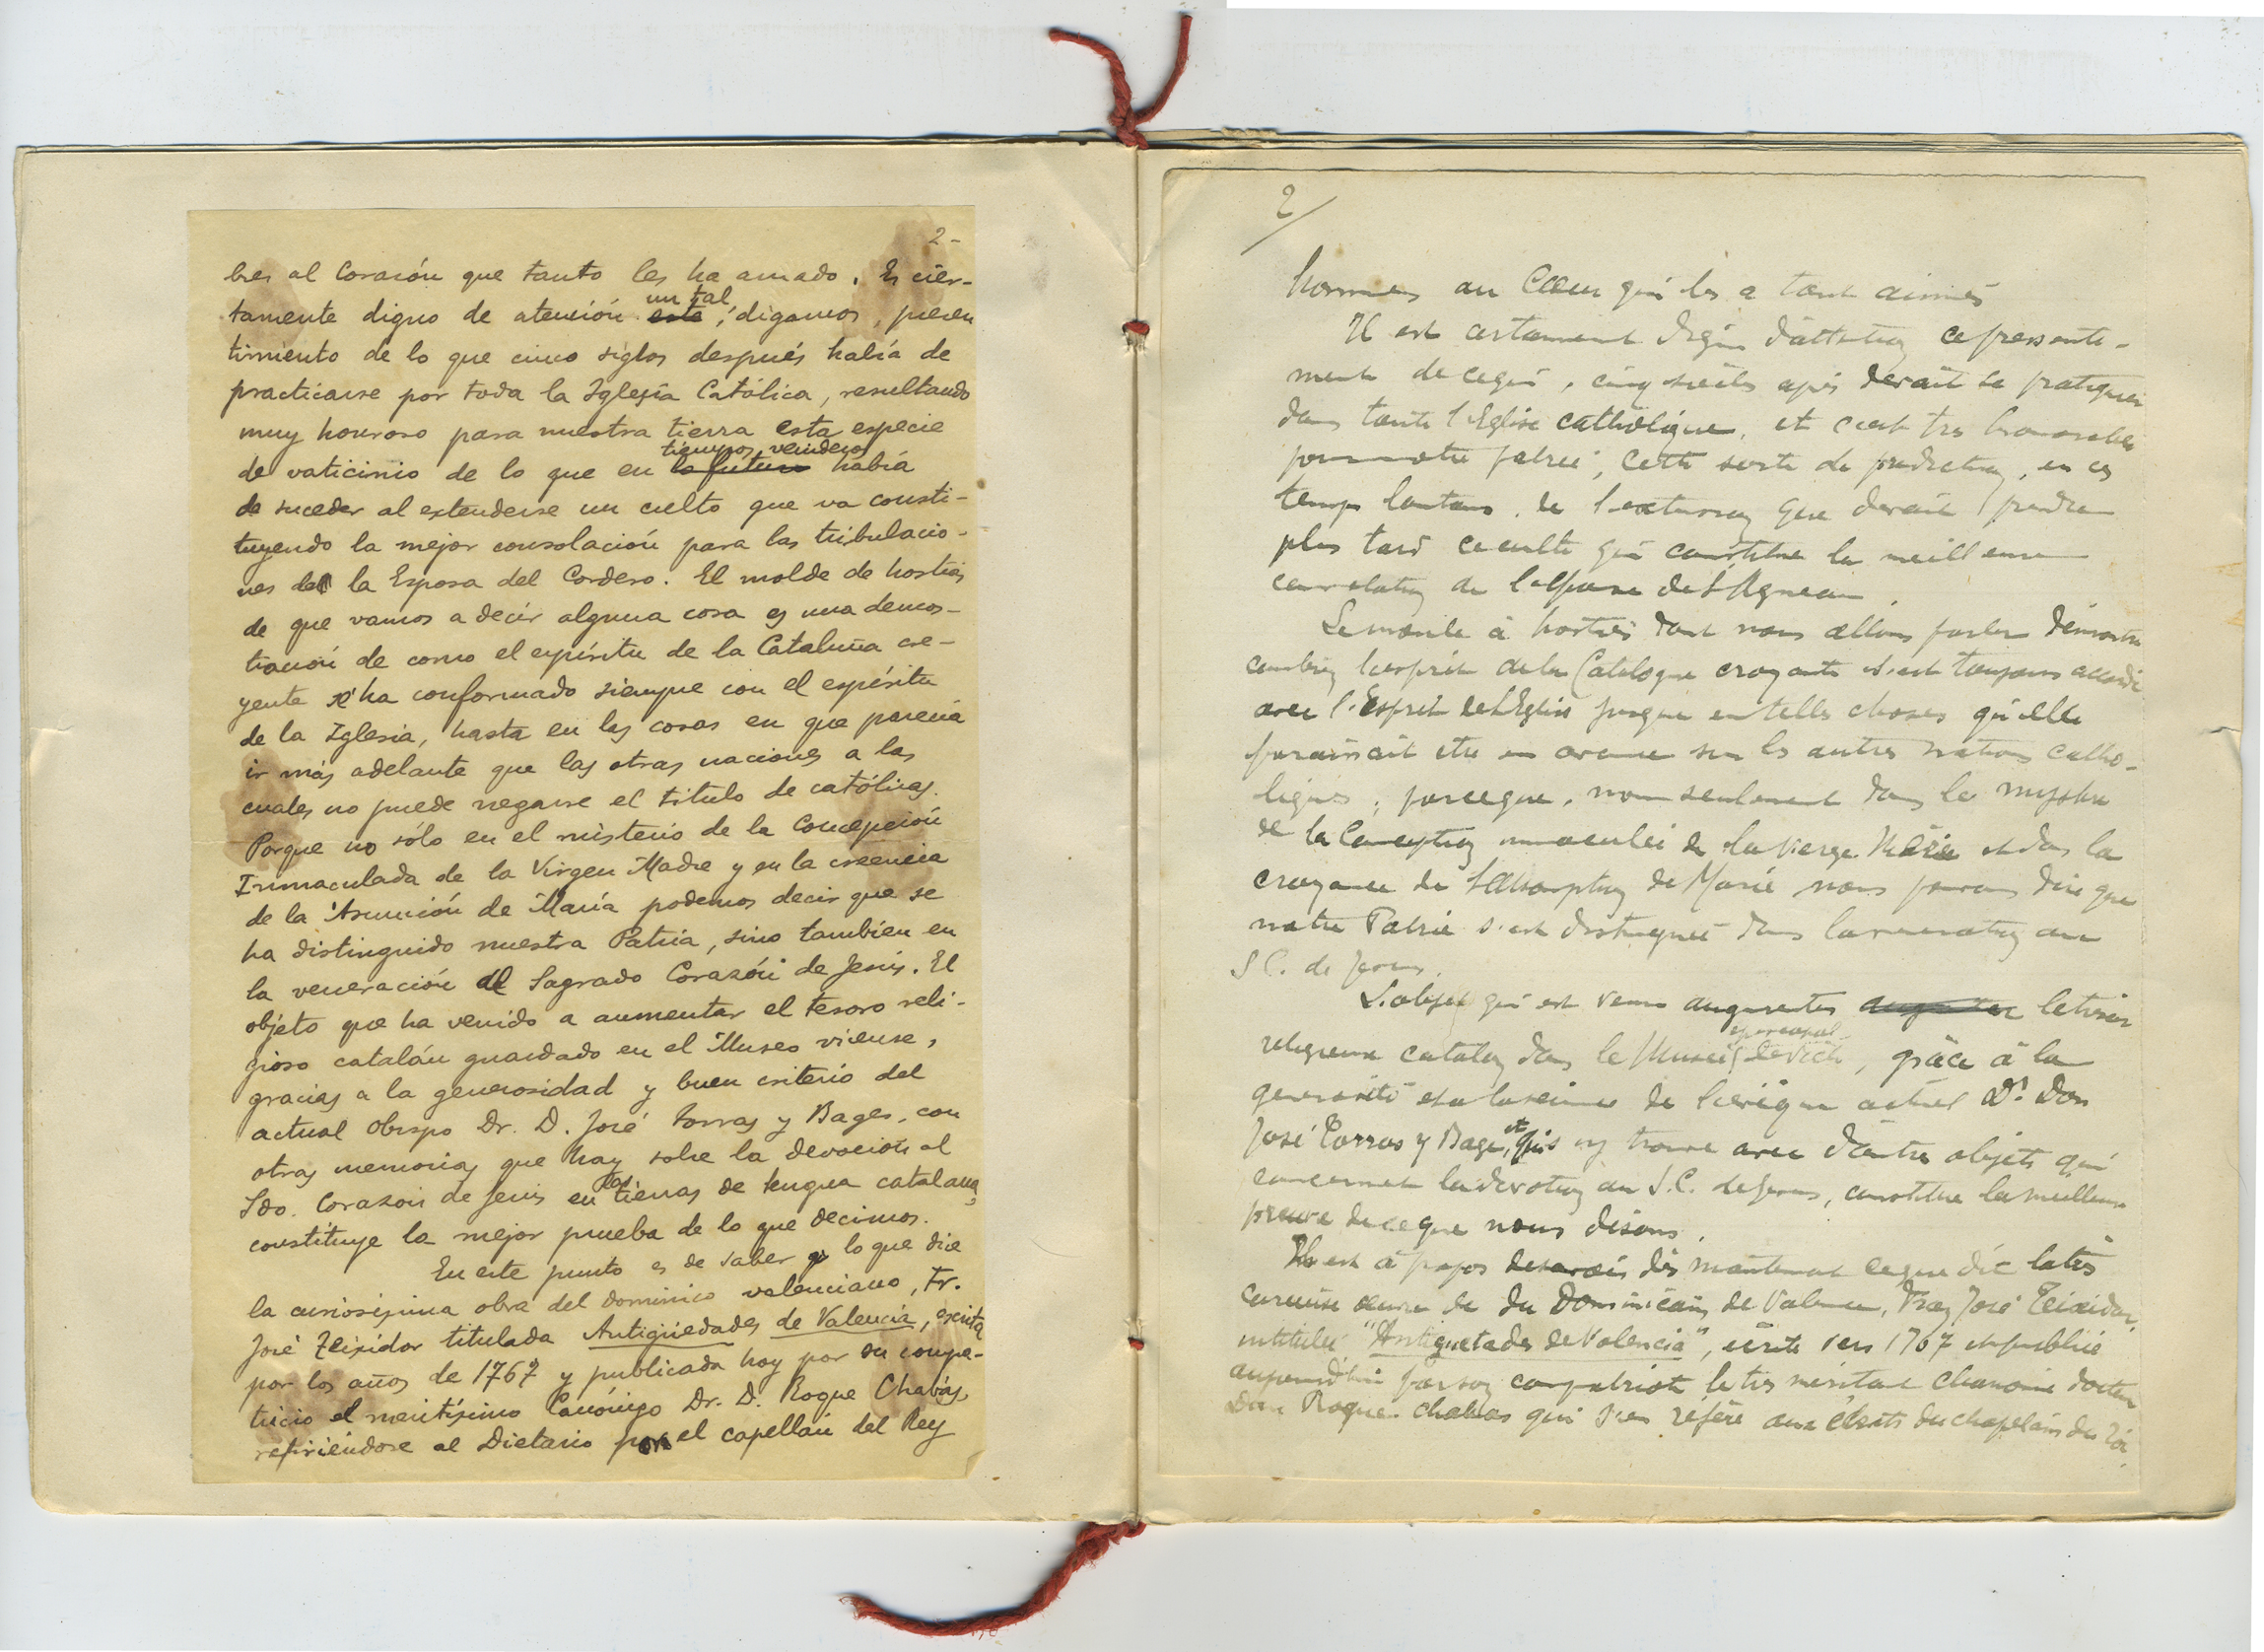 2-
bres al Corazón que tanto les ha amado. Es cier-
tamente digno de atención un tal, digamos, presen
timiento de lo que cinco siglos después había de
practicarse por toda la Iglesia Católica, resultando
muy honroso para nuestra tierra esta especie
de vaticinio de lo que en tiempos venideros había
de suceder al extenderse un culto que va consti-
tuyendo la mejor consolación para las tribulacio-
nes de la Esposa del Cordero. El molde de hostias
de que vamos a decir alguna cosa es una demos-
tración de como el espíritu de la Cataluña cre-
yente se ha conformado siempre con el espíritu
de la Iglesia, hasta en las cosas en que parecía
ir más adelante que las otras naciones a las
cuales no puede negarse el título de católicas.
Porque no sólo en el misterio de la Concepción
Inmaculada de la Virgen Madre y en la creencia
de la Asunción de María podemos decir que se
ha distinguido nuestra Patria, sino también en
la veneración al Sagrado Corazón de Jesús. El
objeto que ha venido a aumentar el tesoro reli-
gioso catalán guardado en el Museo vicense,
gracias a la generosidad y buen criterio del
actual obispo Dr. D. José Torras y Bages, con
otras memorias que hay sobre la devoción al
Sdo. Corazón de Jesús en las tierras de lengua catalana,
constituye la mejor prueba de lo que decimos.
En este punto es de saber lo que dice
la curiosísima obra del dominico valenciano, Fr.
José Teixidor titulada Antigüedades de Valencia, escrita
por los años de 1767 y publicada hoy por su compa-
tricio el meritísimo Canónigo Dr. D. Roque Chabás,
refiriéndose al Dietario por el capellán del Rey
2/
hommes au Cœur qui les a tant aimés
Il est certainement digne d'attention ce pressenti-
ment de ce qui, cinq siècles après devait se pratiquer
dans toute l'Eglise catholique, et c'est très honorable
pour notre patrie, cette sorte de prédiction, en ces
temps lointains, de l'extension que devait prendre
plus tard ce culte qui constitue la meilleure
consolation de l'épouse de l'Agneau.
Le moule à hosties dont nous allons parler démontre
combien l'esprit de la Catalogne croyante s'est toujours accordé
avec l'Esprit de l'Eglise jusque en telles choses qu'elle
paraissait être en avance sur les autres nations catho-
liques; parceque, non seulement dans le mystère
de la Conception immaculée de la vierge Mère et dans la
croyance de l'Assomption de Marie nous pouvons dire que
notre Patrie s'est distinguée dans la vénération au
S C. de Jesus.
L'objet qui est venu augmenter le trésor
religieux catalan dans le Musée épiscopal de Vich, grâce à la
générosité et a la science de l'evêque actuel Dr. Don
José Torras y Bages, et qui s'y trouve avec d'autres objets qui
concernent la dévotion au S.C. de Jesus, constitue la meilleure
preuve de ce que nous disons.
Il est à propos de savoir dès maintenant ce que dit la très
curieuse œuvre de du Dominicain de Valence, Fray José Teixidor,
intitulée "Antiguetades de Valencia", écrite vers 1767 et publiée
aujourd'hui par son compatriote le très méritant Chanoine docteur
Don Roque Chabas qui s'en réfère aux écrits du chapelain du roi